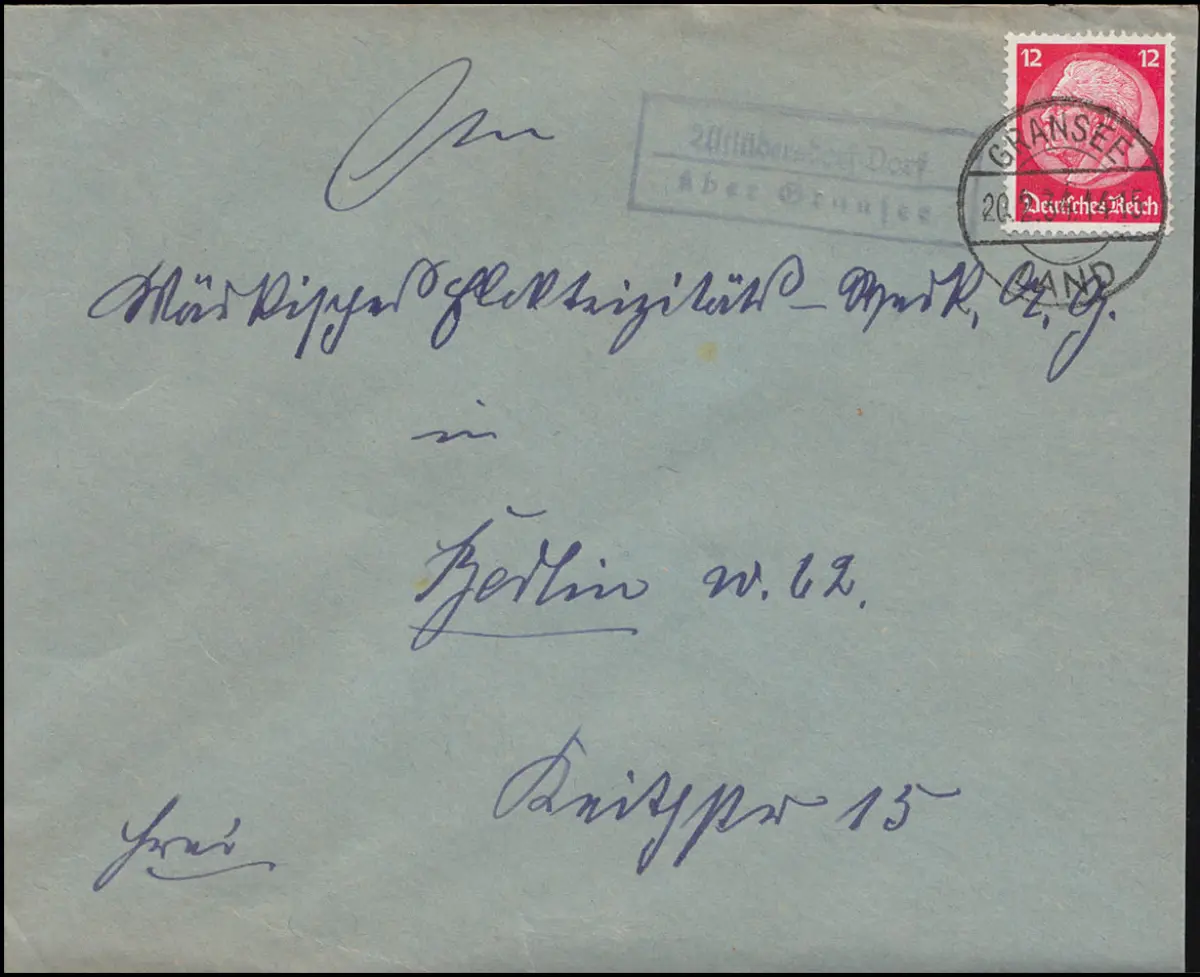 12 12
Deutsches Reich
GRANSEE
20.2.34.14-15
LAND
über Gransee
An
Märkisches Elektrizitäts-Werk, A. G.
in
Berlin W. 62.
Keithstr 15
frei